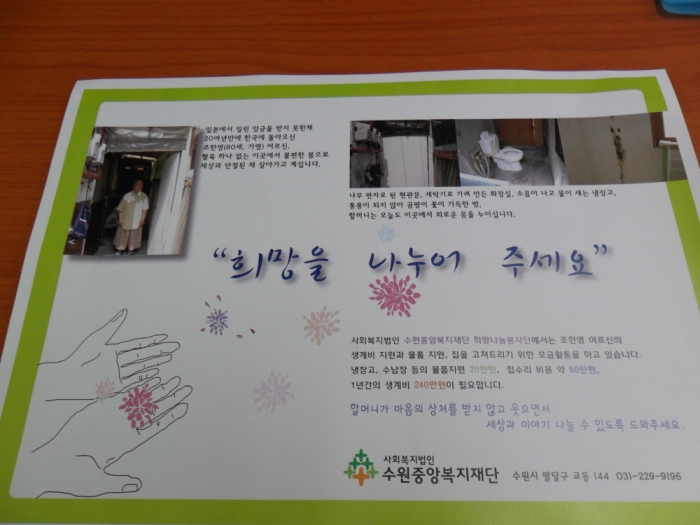 일본에서 밀린 임금을 받지 못한채
20여년만에 한국에 돌아오신
조한영(80세, 가명) 어르신.
혈육 하나 없는 이곳에서 불편한 몸으로
세상과 단절된 채 살아가고 계십니다.
나무 판자로 된 현관문, 세탁기로 가려 만든 화장실, 소음이 나고 물이 새는 냉장고,
통풍이 되지 않아 곰팡이 꽃이 가득한 방,
할머니는 오늘도 이곳에서 외로운 몸을 누이십니다.
“희망을 나누어 주세요”
사회복지법인 수원중앙복지재단 희망나눔봉사단에서는 조한영 어르신의
생계비 지원과 물품 지원, 집을 고쳐드리기 위한 모금활동을 하고 있습니다.
냉장고, 수납장 등의 물품지원 20만원, 집수리 비용 약 50만원,
1년간의 생계비 240만원이 필요합니다.
할머니가 마음의 상처를 받지 않고 웃으면서
세상과 이야기 나눌 수 있도록 도와주세요.
사회복지법인
수원중앙복지재단 수원시 팔달구 교동 144 031-229-9196